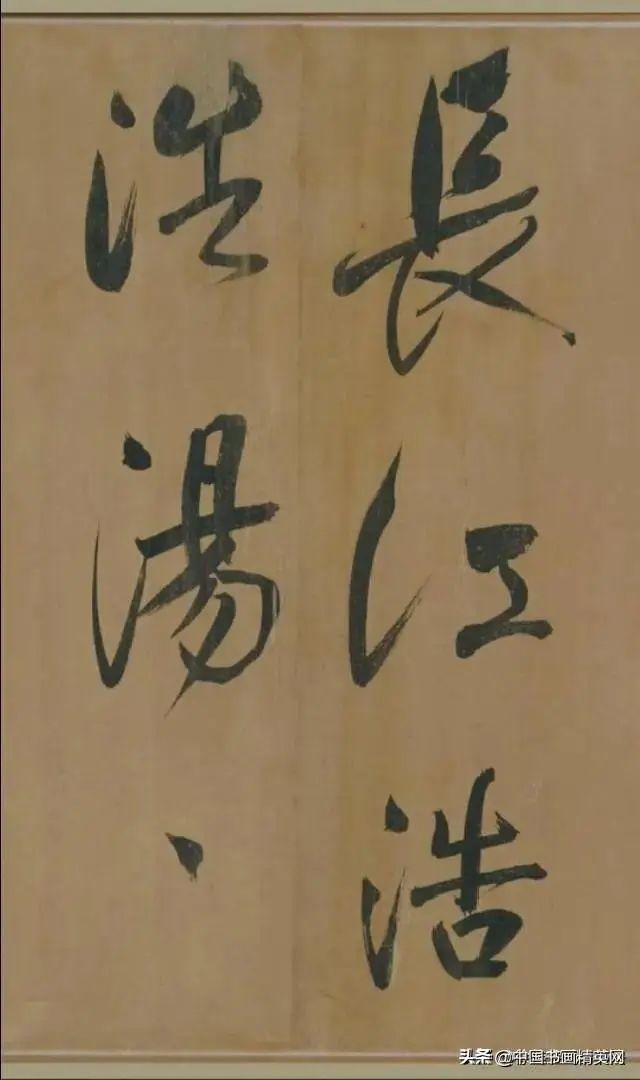 長江浩
浩湯、
头条 @中国书画精英网